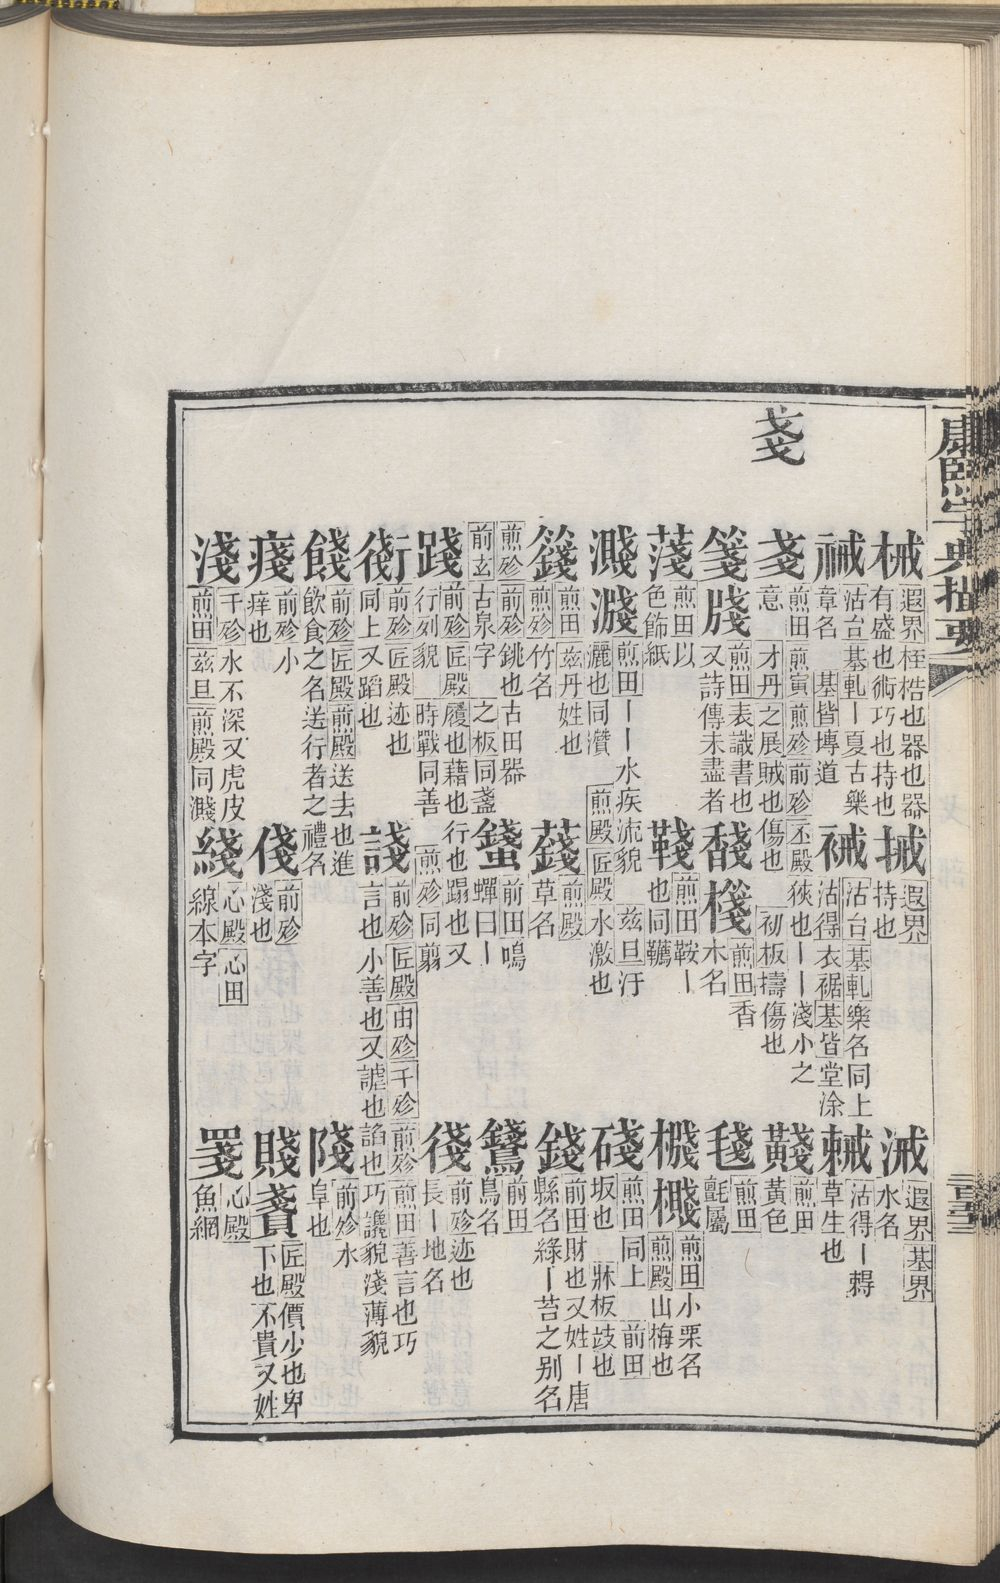 康熙字典撮要
戔
械 遐界桎梏也器也器有盛也術巧也持也 㧴 遐界持也 㳦 遐界基界水名
祴 沽台基軋丨夏古樂章名 基皆塼道 裓 沽台基軋樂名同上沽得衣裾基皆堂涂 𧐅 沽得丨㝵草生也
戔 煎田煎寅煎殄前殄丕殿狹也丨丨淺小之意 才丹之展賊也傷也 初板擣傷也 䵐 煎田黃色
箋 牋 煎田表識書也又詩傳未盡者 馢 棧 煎田香木名 毧 煎田氈屬
䔐 煎田以色飾紙 韉 煎田鞍丨也同韉 樾 檝 煎田小栗名煎殿山梅也
濺 濺 煎田丨丨水疾流貌 茲旦汙灑也同灒 煎殿匠殿水激也 碊 煎田同上 前田坂也 牀板歧也
籛 煎田茲丹姓也煎殄竹名 䔐 煎殿草名 錢 前田財也又姓丨唐縣名綠丨苔之別名
煎殄前殄銚也古田器前玄古泉字 之板同盞 䗃 前田鳴蟬曰丨 鵔 前田鳥名
踐 前殄匠殿履也藉也行也蹋也又行列貌 時戰同善 煎殄同翦 俴 前殄迹也長丨地名
衘 前殄匠殿迹也同上又蹈也 諓 前殄匠殿由殄千殄煎殄煎田善言也巧言也小善也又謔也諂也巧讒貌淺薄貌
餞 前殄匠殿煎殿送去也進飲食之名送行者之禮名 㟞 前殄水阜也
㾪 前殄小痒也 俴 前殄淺也 賤 䝨 匠殿價少也卑下也不貴又姓
淺 千殄水不深又虎皮煎田茲旦煎殿同濺 綫 心殿心田線本字 䍁 心殿魚網